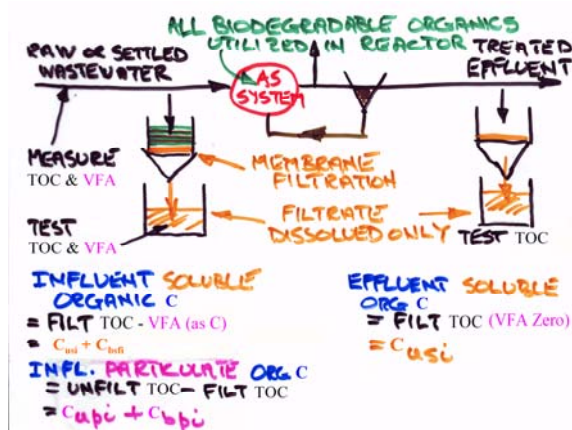 ALL BIODEGRADABLE ORGANICS
UTILIZED IN REACTOR
RAW OR SETTLED
WASTEWATER
AS
SYSTEM
TREATED
EFFLUENT
MEASURE
TOC & VFA
MEMBRANE
FILTRATION
TEST
TOC & VFA
FILTRATE
DISSOLVED ONLY
TEST TOC
INFLUENT SOLUBLE
ORGANIC C
= FILT TOC - VFA (as C)
= Cusi + Cbsfi
INFL. PARTICULATE ORG C
= UNFILT TOC - FILT TOC
= Cupi + Cbpi
EFFLUENT SOLUBLE
ORG C
= FILT TOC (VFA Zero)
= Cusi